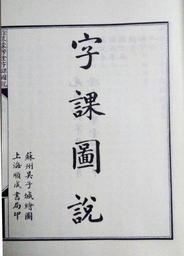 字課圖說
蘇州吳子城繪圖
上海順成書局印